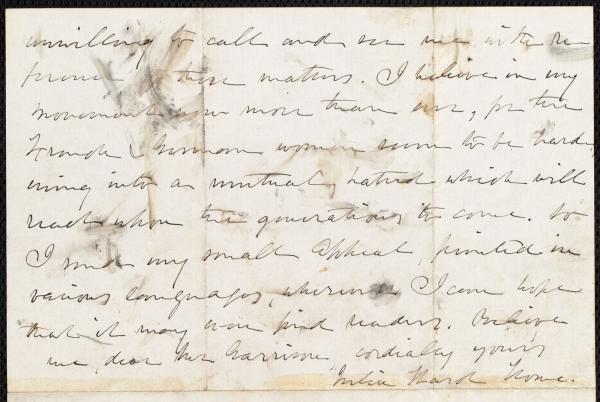 unwilling to call and see me with re
ference to these matters. I believe in my
movement now more than ever, for the
French & German women seem to be hard
ening into a mutual hatred which will
react upon the generations to come. So
I send my small appeal, printed in
various languages, wherever I can hope
that it may even find readers. Believe
me, dear Mr Garrison cordially yours
Julia Ward Howe.